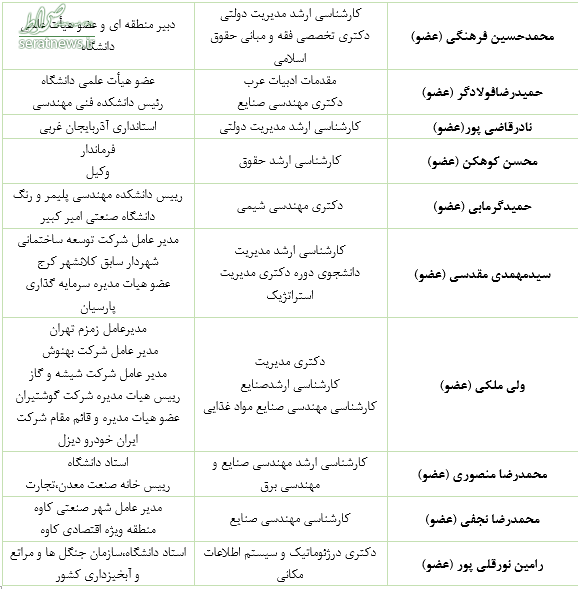 محمدحسین فرهنگی (عضو)
کارشناسی ارشد مدیریت دولتی
دکتری تخصصی فقه و مبانی حقوق
اسلامی
دبیر منطقه ای و عضو هیأت علمی
دانشگاه
seratnews.ir
حمیدرضافولادگر (عضو)
مقدمات ادبیات عرب
دکتری مهندسی صنایع
عضو هیأت علمی دانشگاه
رئیس دانشکده فنی مهندسی
نادرقاضی پور(عضو)
کارشناسی ارشد مدیریت دولتی
استانداری آذربایجان غربی
محسن کوهکن (عضو)
کارشناسی ارشد حقوق
فرماندار
وکیل
حمیدگرمابی (عضو)
دکتری مهندسی شیمی
رییس دانشکده مهندسی پلیمر و رنگ
دانشگاه صنعتی امیر کبیر
سیدمهمدی مقدسی (عضو)
کارشناسی ارشد مدیریت
دانشجوی دوره دکتری مدیریت
استراتژیک
مدیر عامل شرکت توسعه ساختمانی
شهردار سابق کلانشهر کرج
عضو هیات مدیره سرمایه گذاری
پارسیان
ولی ملکی (عضو)
دکتری مدیریت
کارشناسی ارشدصنایع
کارشناسی مهندسی صنایع مواد غذایی
مدیرعامل زمزم تهران
مدیر عامل شرکت بهنوش
مدیر عامل شرکت شیشه و گاز
رییس هیات مدیره شرکت گوشتیران
عضو هیات مدیره و قائم مقام شرکت
ایران خودرو دیزل
محمدرضا منصوری (عضو)
کارشناسی ارشد مهندسی صنایع و
مهندسی برق
استاد دانشگاه
رییس خانه صنعت معدن،تجارت
محمدرضا نجفی (عضو)
کارشناسی مهندسی صنایع
مدیر عامل شهر صنعتی کاوه
منطقه ویژه اقتصادی کاوه
رامین نورقلی پور (عضو)
دکتری درژئوماتیک و سیستم اطلاعات
مکانی
استاد دانشگاه،سازمان جنگل ها و مراتع
و آبخیزداری کشور